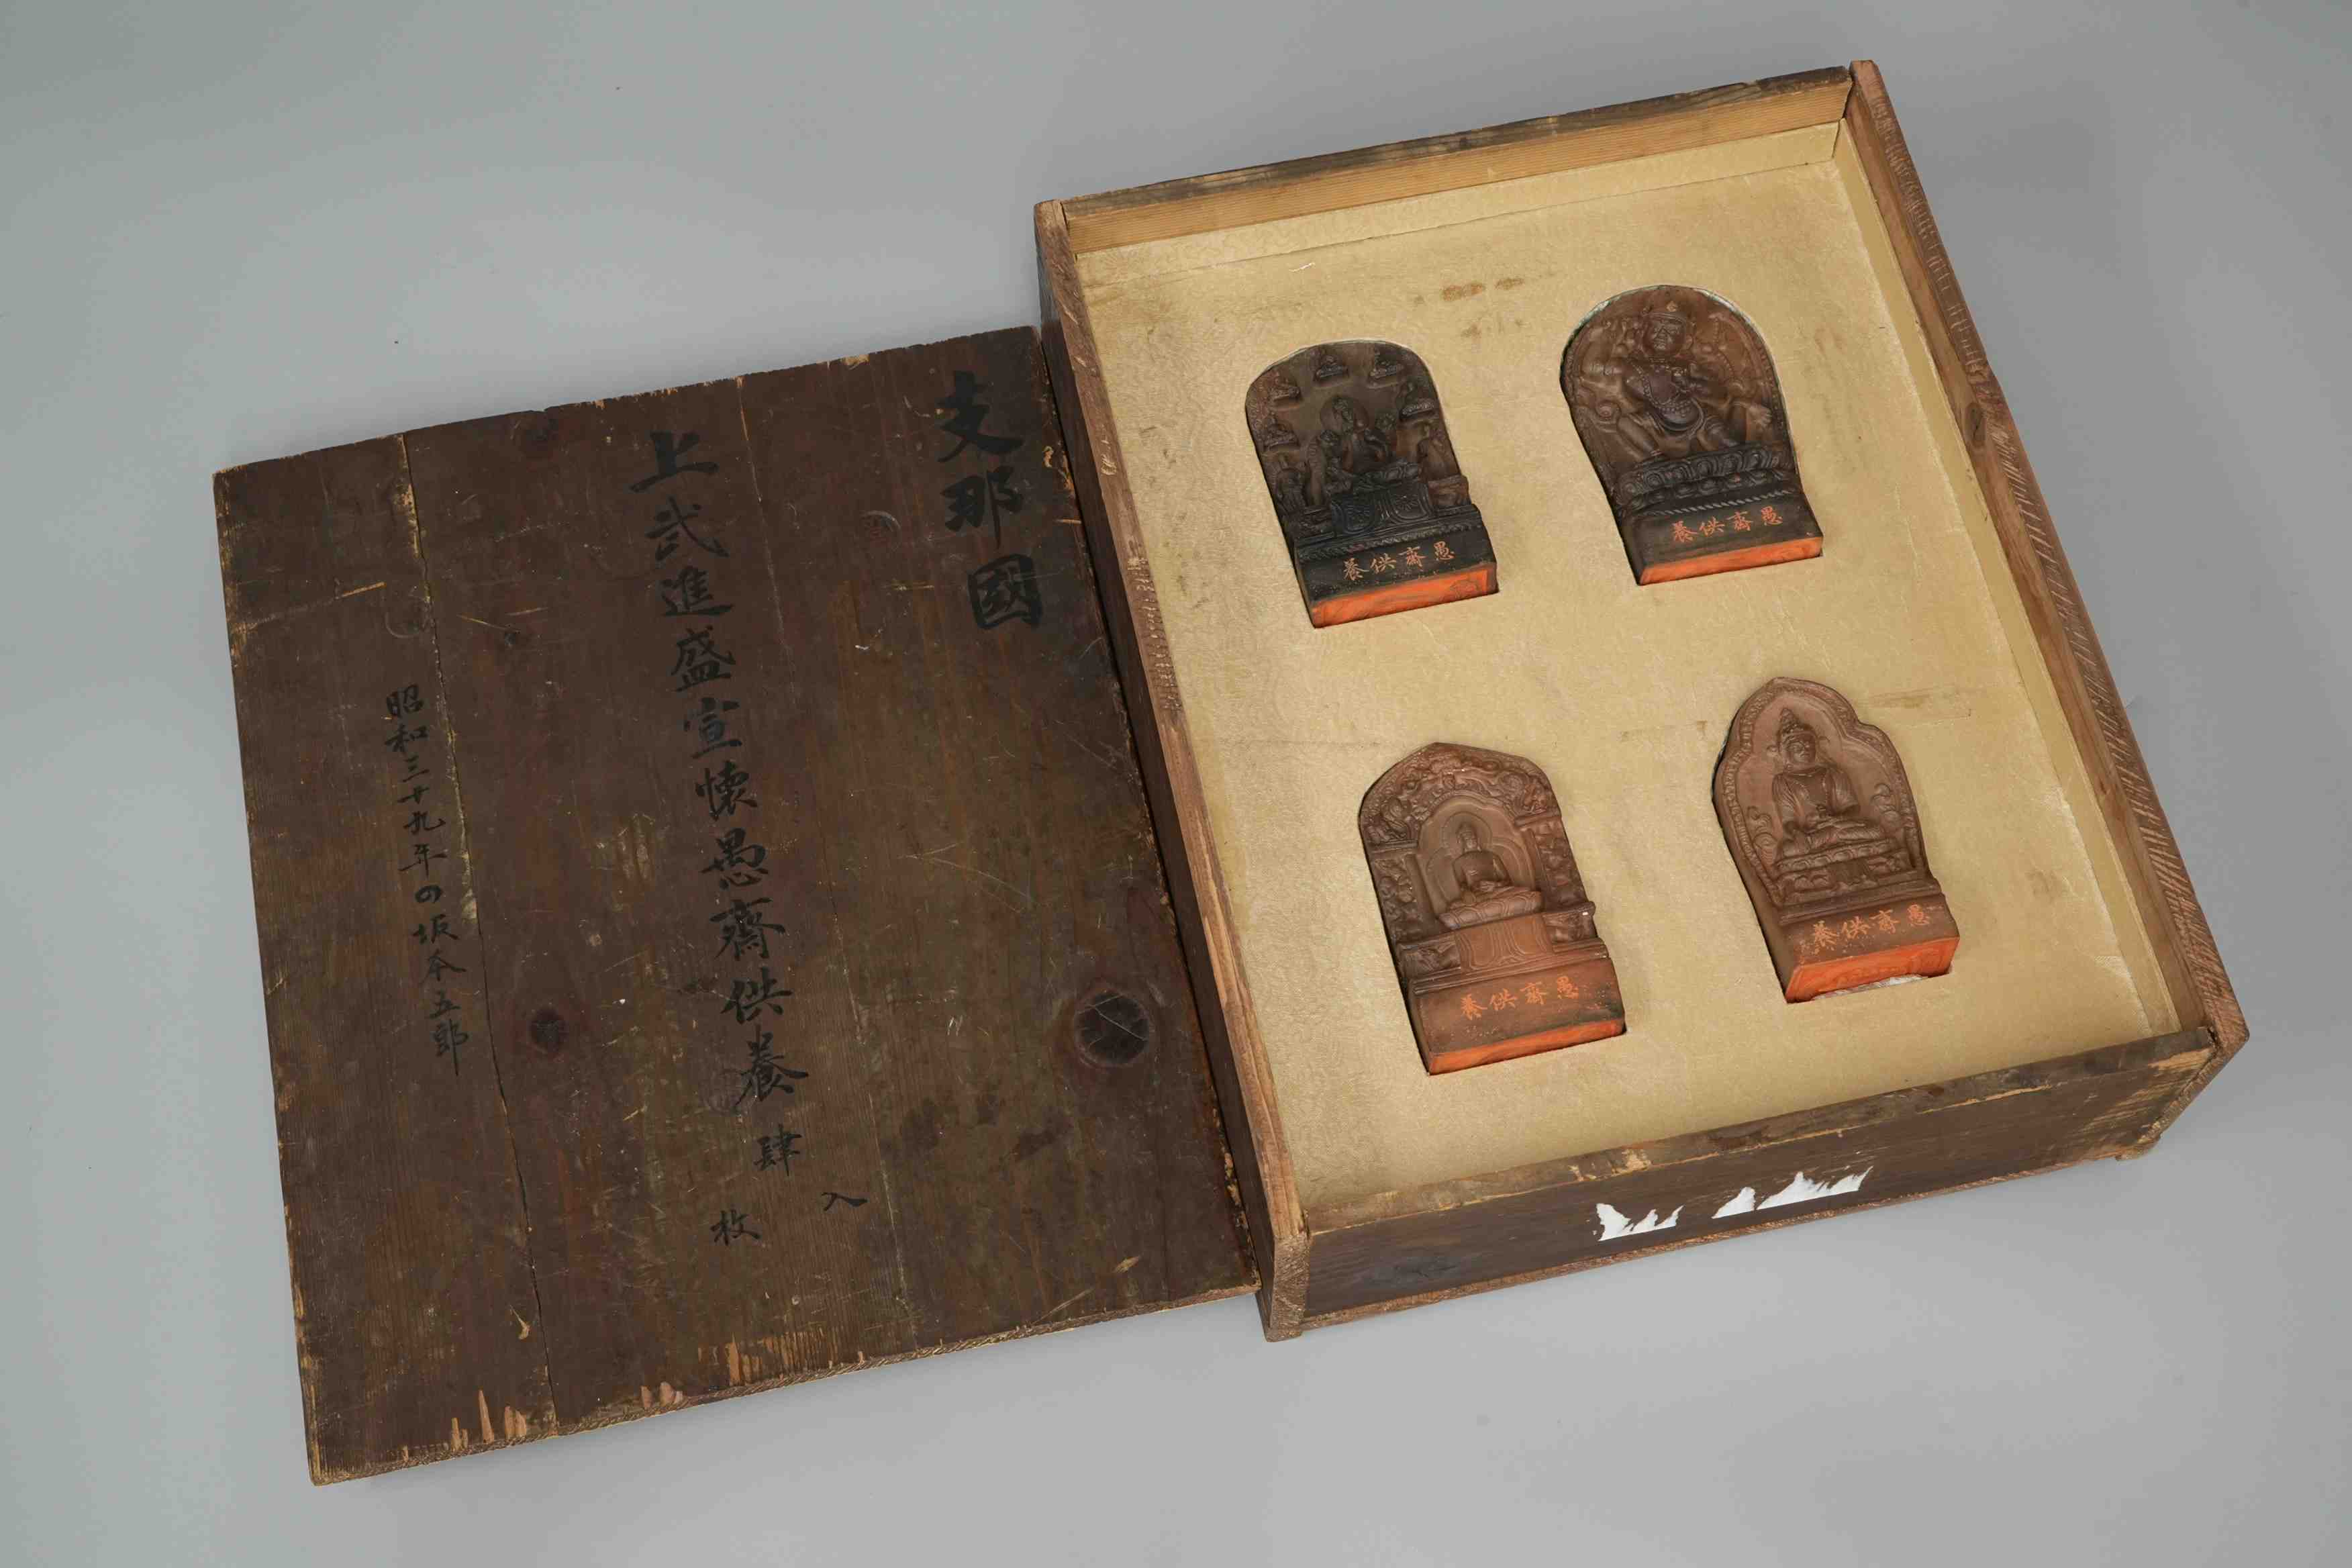 支那國
上武進盛宣懐愚齋供養肆枚入
昭和三十九年の坂本五郎
愚齋供養
愚齋供養
愚齋供養
愚齋供養